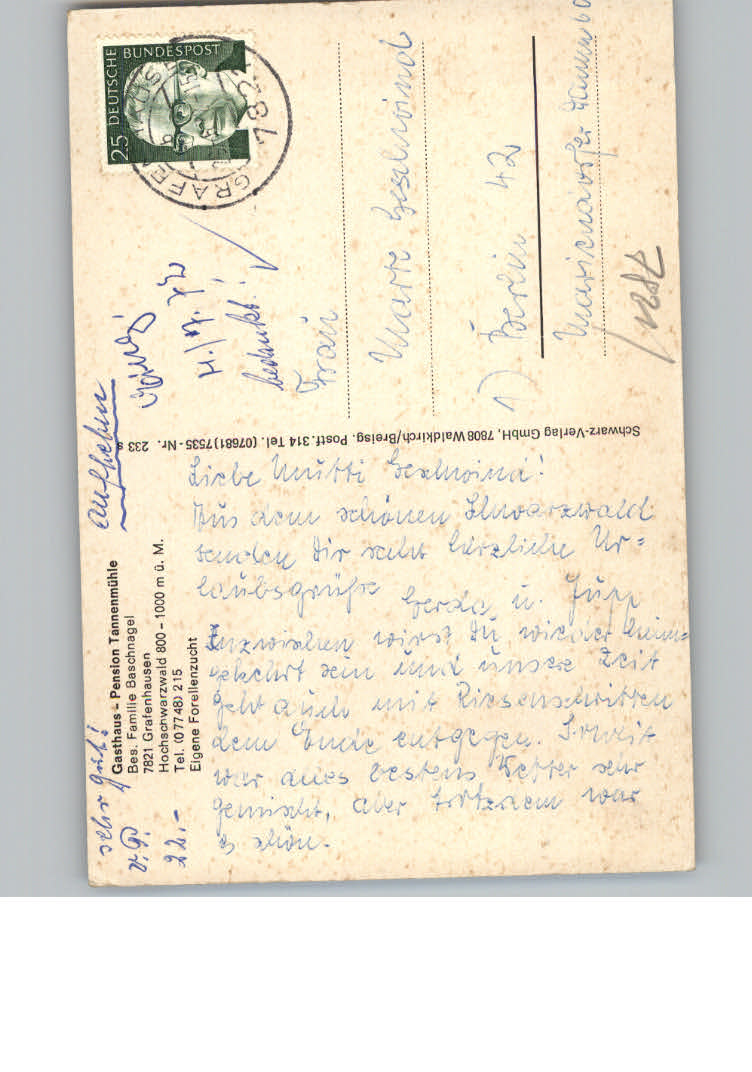 sehr gut!
v. P.
22.-
Aufheben
Gasthaus - Pension Tannenmühle
Bes. Familie Baschnagel
7821 Grafenhausen
Hochschwarzwald 800 - 1000 m ü. M.
Tel. (07748) 215
Eigene Forellenzucht
Liebe Mutti Geschwind!
Aus dem schönen Schwarzwald
senden Dir sehr herzliche Ur=
laubsgrüße Gerda u. Jupp
Inzwischen wirst Du wieder heim=
gekehrt sein und unsere Zeit
geht auch mit Riesenschritten
dem Ende entgegen. Soweit
war alles bestens Wetter sehr
gemischt, aber trotzdem war
es schön.
Schwarz-Verlag GmbH, 7808 Waldkirch/Breisg. Postf. 314 Tel. (07681) 7535 - Nr. 233 s
DEUTSCHE BUNDESPOST
25
7821
GRAFENHAUSEN
bedankt!
Frau
Marte Geschwind
1) Berlin 42
Mariendorfer Damm 60